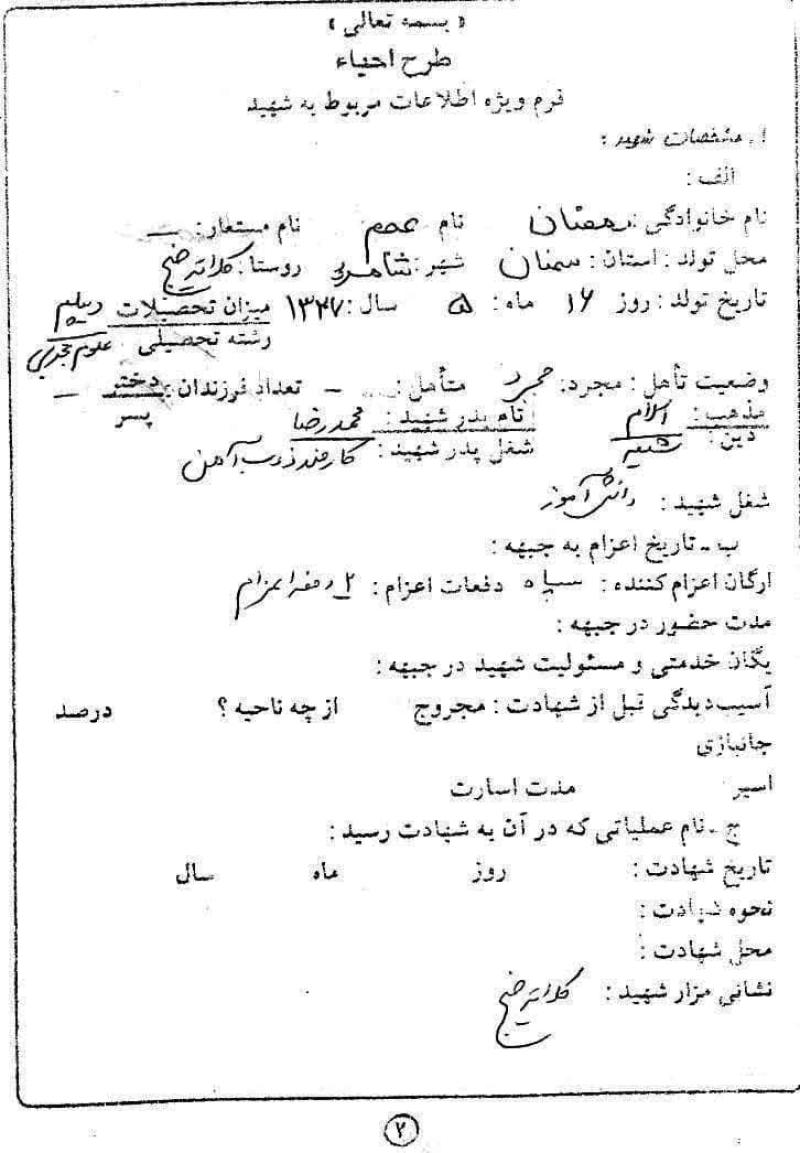 « بسمه تعالی »
طرح احیاء
فرم ویژه اطلاعات مربوط به شهید
۱. مشخصات شهید :
الف :
نام خانوادگی : رمضان نام نام مستعار : —
محل تولد : استان : سمنان شهر : شاهرود روستا : کلاته خیج
تاریخ تولد : روز ۱۶ ماه : ۵ سال : ۱۳۴۷ میزان تحصیلات دیپلم
رشته تحصیلی علوم تجربی
وضعیت تأهل : مجرد : مجرد متأهل : — تعداد فرزندان : دختر —
پسر
مذهب : اسلام نام پدر شهید : محمدرضا
دین : شیعه شغل پدر شهید : کارمند ذوب آهن
شغل شهید : دانش آموز
ب - تاریخ اعزام به جبهه :
ارگان اعزام کننده : سپاه دفعات اعزام : ۲ دفعه اعزام
مدت حضور در جبهه :
یگان خدمتی و مسئولیت شهید در جبهه :
آسیب دیدگی قبل از شهادت : مجروح از چه ناحیه ؟ درصد
جانبازی
اسیر مدت اسارت
ج - نام عملیاتی که در آن به شهادت رسید :
تاریخ شهادت : روز ماه سال
نحوه شهادت :
محل شهادت :
نشانی مزار شهید : کلاته خیج
۲